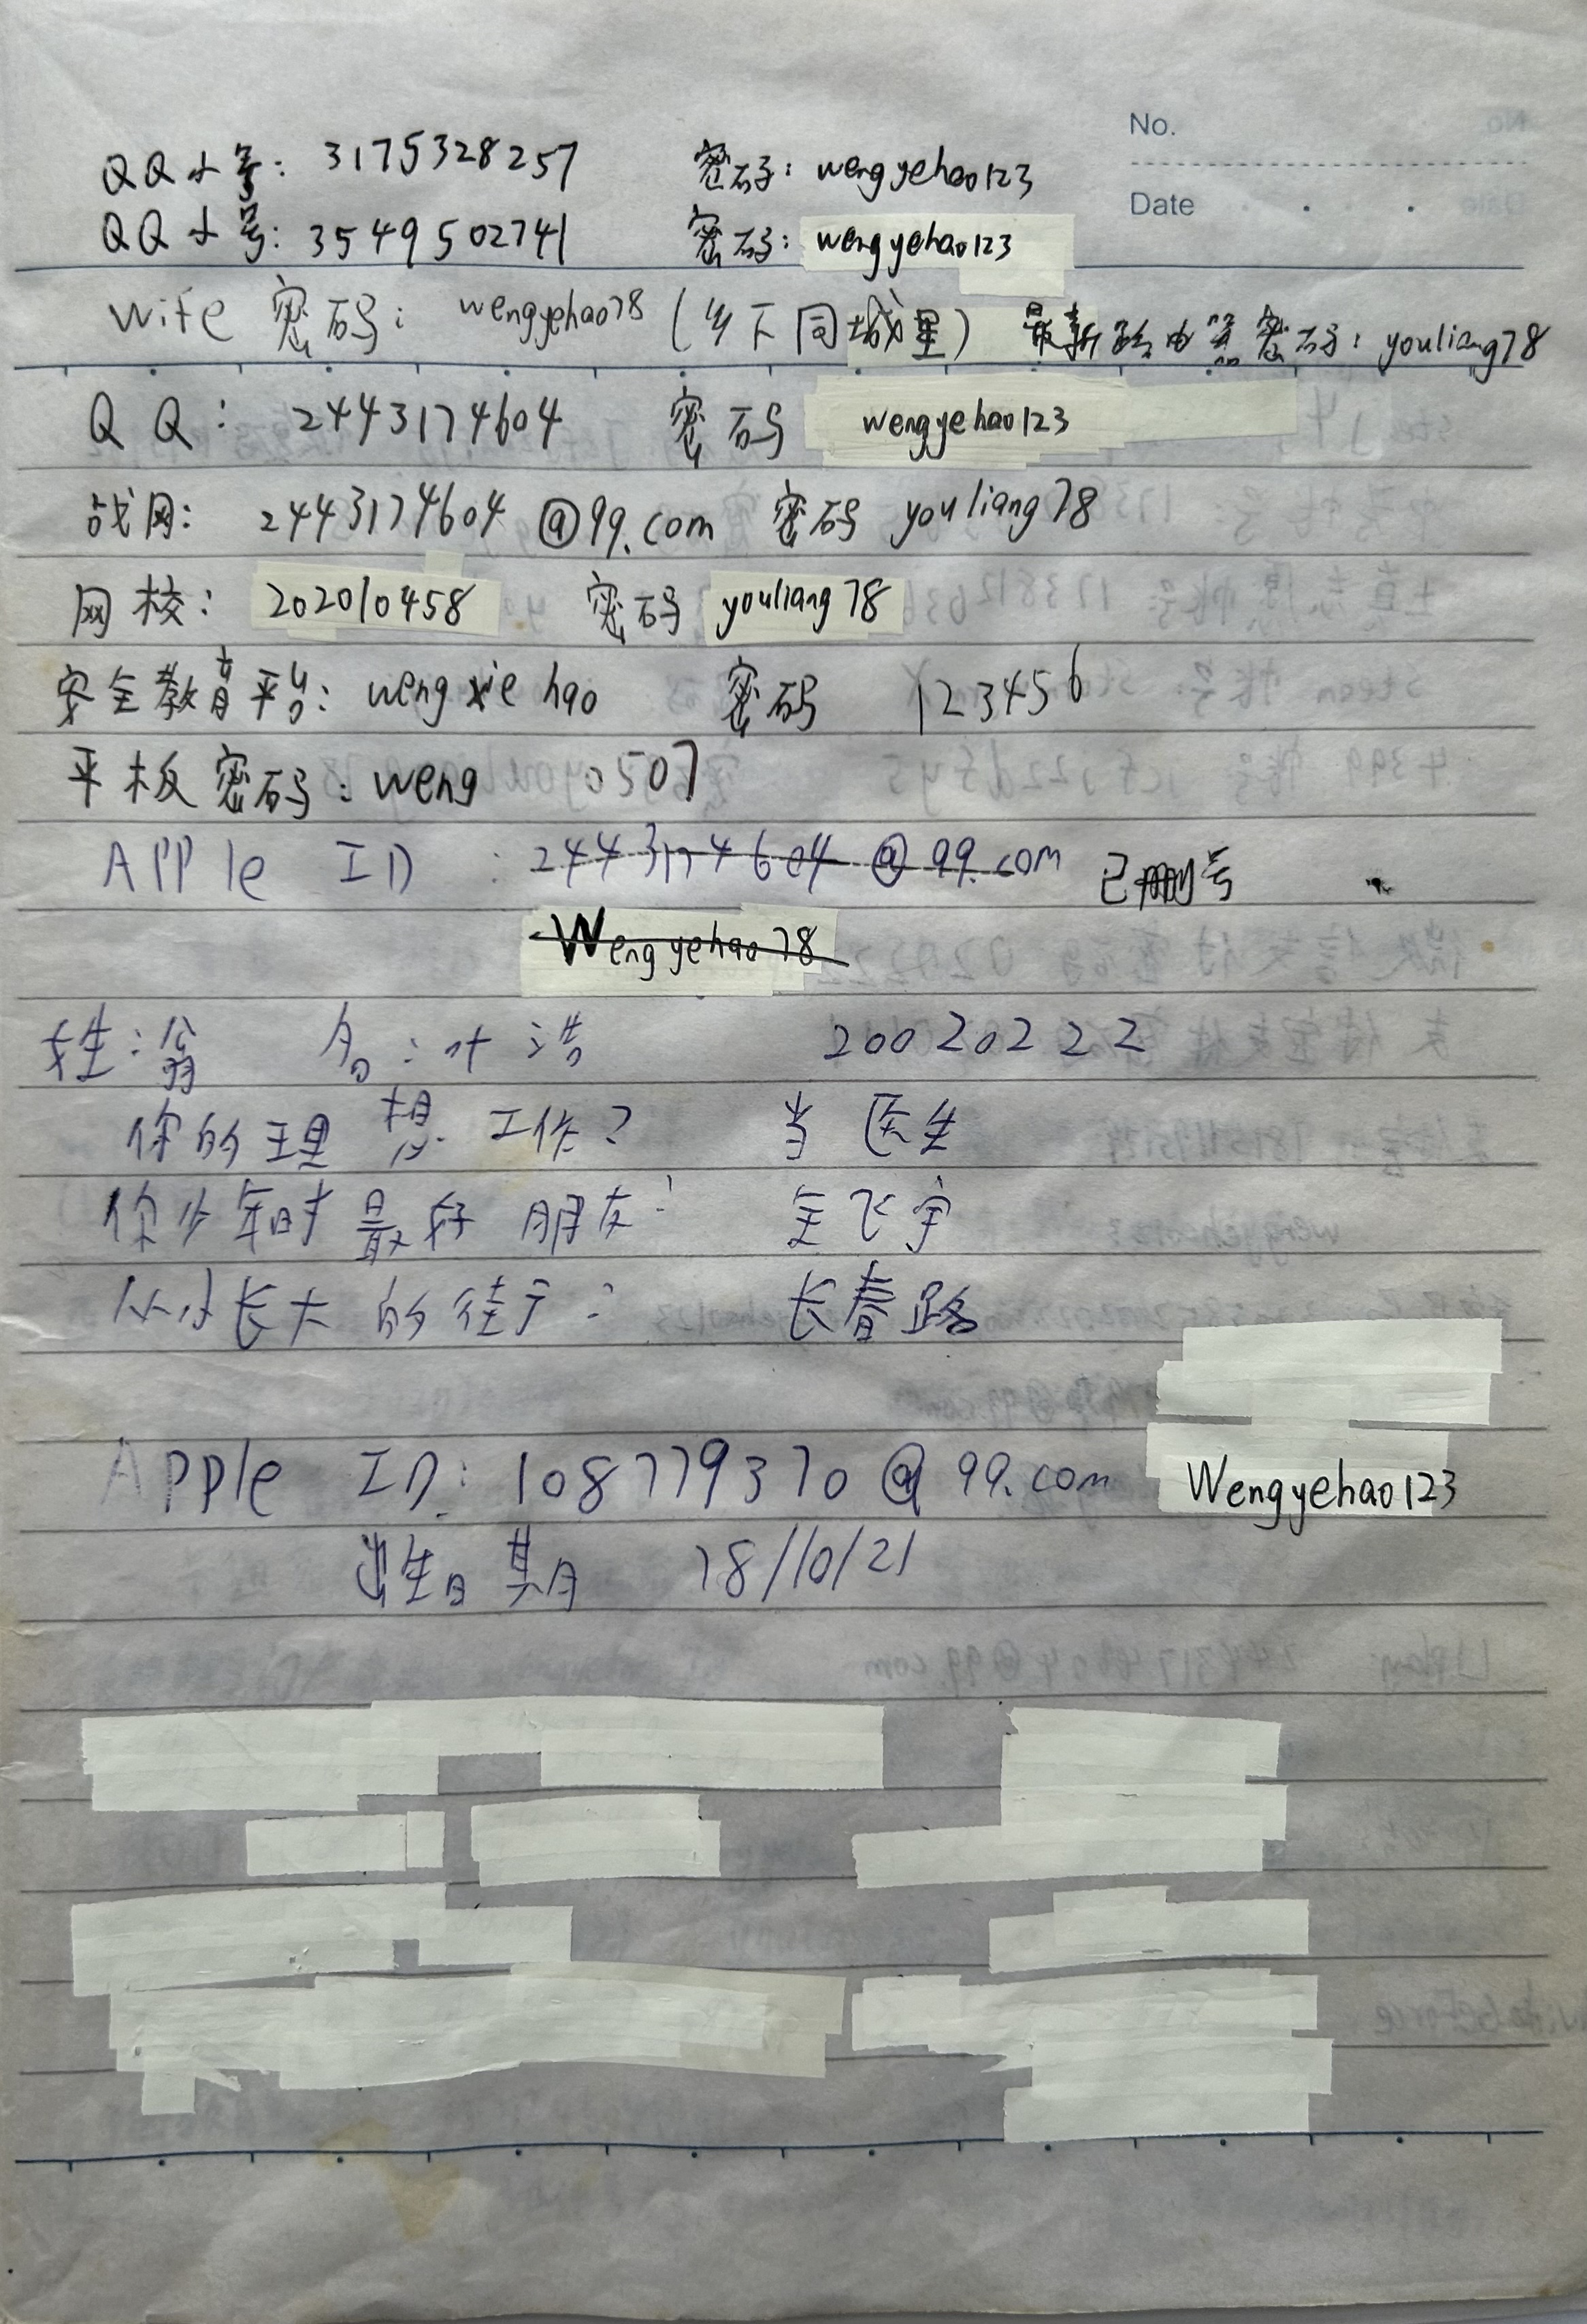 No.
Date
QQ小号: 3175328257 密码: wengyehao123
QQ小号: 3549502741 密码: wengyehao123
wife 密码: wengyehao78 (乡下同城里) 最新路由器密码: youliang78
QQ: 2443174604 密码 wengyehao123
战网: 2443174604@qq.com 密码 youliang78
网校: 202010458 密码 youliang78
安全教育平台: wengxiehao 密码 123456
平板密码: weng 0507
APPle ID : 2443174604@qq.com 已删号
Wengyehao78
姓:翁 名:叶浩 20020222
你的理想工作? 当医生
你少年时最好朋友: 金飞宇
从小长大的街于: 长春路
APPle ID: 108779370@qq.com Wengyehao123
出生日期 78/10/21